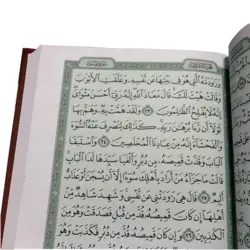 وَرَٰوَدَتْهُ ٱلَّتِى هُوَ فِى بَيْتِهَا عَن نَّفْسِهِۦ وَغَلَّقَتِ ٱلْأَبْوَٰبَ
وَقَالَتْ هَيْتَ لَكَ قَالَ مَعَاذَ ٱللَّهِ إِنَّهُۥ رَبِّىٓ أَحْسَنَ مَثْوَاىَ
إِنَّهُۥ لَا يُفْلِحُ ٱلظَّٰلِمُونَ ٢٣ وَلَقَدْ هَمَّتْ بِهِۦ وَهَمَّ بِهَا
لَوْلَآ أَن رَّءَا بُرْهَٰنَ رَبِّهِۦ كَذَٰلِكَ لِنَصْرِفَ عَنْهُ ٱلسُّوٓءَ
وَٱلْفَحْشَآءَ إِنَّهُۥ مِنْ عِبَادِنَا ٱلْمُخْلَصِينَ ٢٤ وَٱسْتَبَقَا
ٱلْبَابَ وَقَدَّتْ قَمِيصَهُۥ مِن دُبُرٍ وَأَلْفَيَا سَيِّدَهَا لَدَا ٱلْبَابِ
قَالَتْ مَا جَزَآءُ مَنْ أَرَادَ بِأَهْلِكَ سُوٓءًا إِلَّآ أَن يُسْجَنَ أَوْ عَذَابٌ
أَلِيمٌ ٢٥ قَالَ هِىَ رَٰوَدَتْنِى عَن نَّفْسِى وَشَهِدَ شَاهِدٌ مِّنْ
أَهْلِهَآ إِن كَانَ قَمِيصُهُۥ قُدَّ مِن قُبُلٍ فَصَدَقَتْ وَهُوَ مِنَ
ٱلْكَٰذِبِينَ ٢٦ وَإِن كَانَ قَمِيصُهُۥ قُدَّ مِن دُبُرٍ فَكَذَبَتْ وَهُوَ